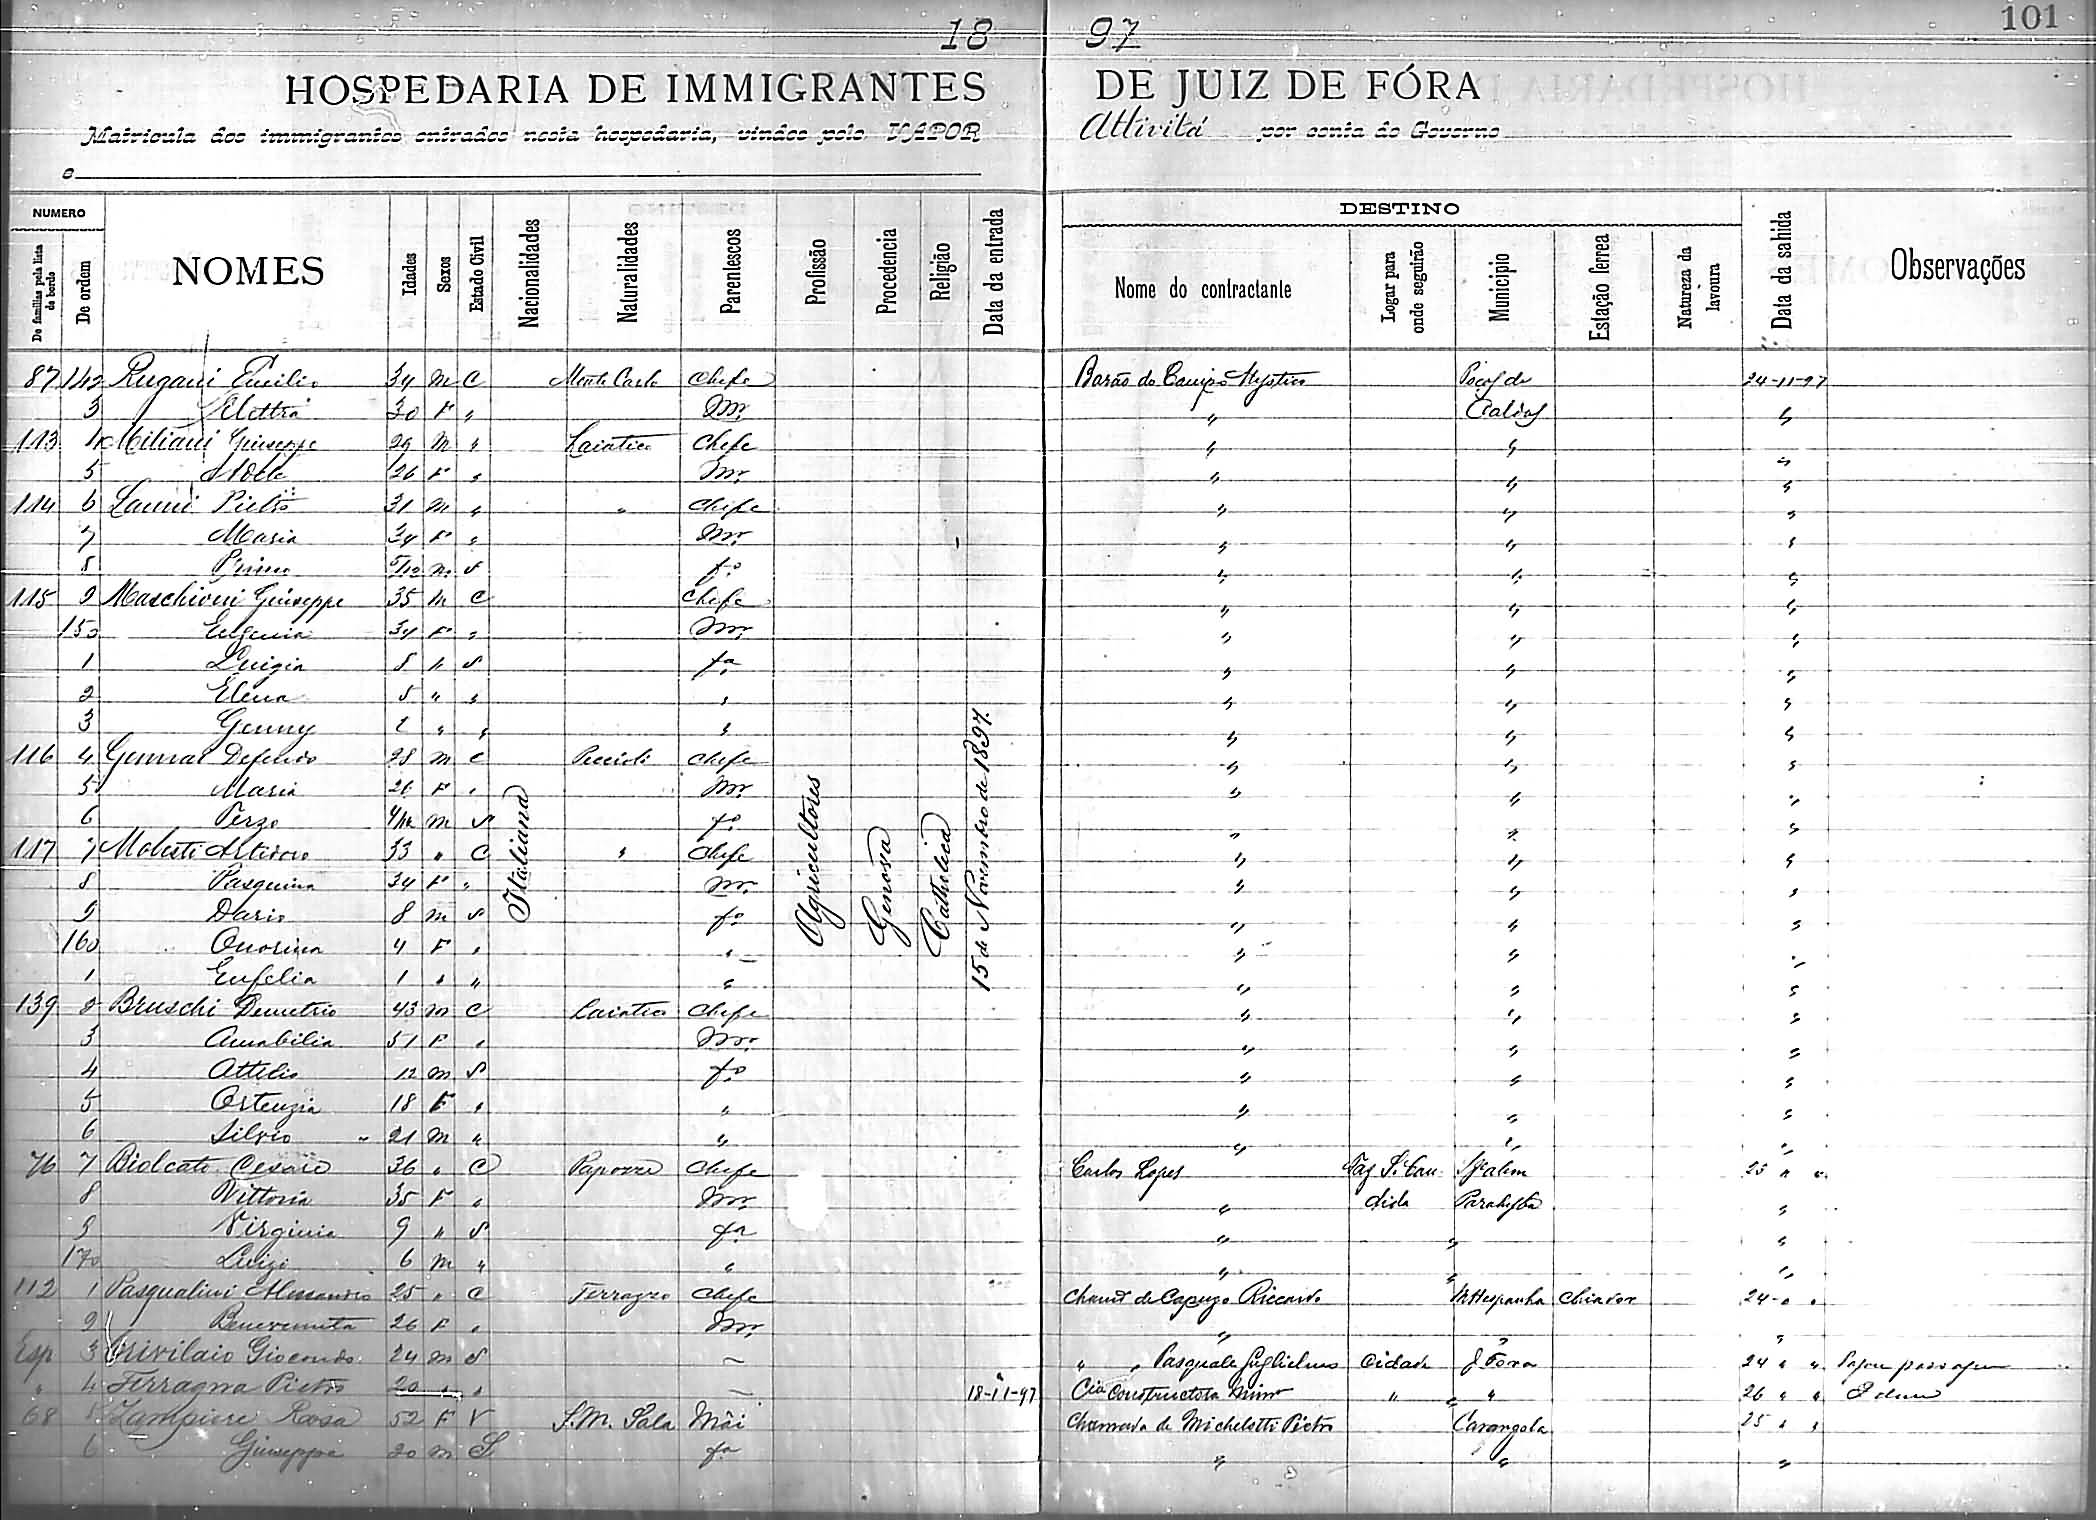 18 97
101
HOSPEDARIA DE IMMIGRANTES DE JUIZ DE FÓRA
Matricula dos immigrantes entrados nesta hospedaria, vindos pelo VAPOR Attivitá por conta do Governo
e
NUMERO
De familias pela lista de bordo
De ordem
NOMES
Idades
Sexos
Estado Civil
Nacionalidades
Naturalidades
Parentescos
Profissão
Procedencia
Religião
Data da entrada
DESTINO
Nome do contractante
Logar para onde seguirão
Municipio
Estação ferrea
Natureza da lavoura
Data da sahida
Observações
Italiana
Agricultores
Genova
Catholica
15 de Novembro de 1897.
87 142 Rugani Emilio 34 M C Monte Carlo Chefe Barão do Campo Mystico Poços de 24-11-97
3 Elettra 30 F " Mr. " Caldas "
113 4 Miliani Giuseppe 29 M " Laiatico Chefe " " "
5 26 F " Mr. " " "
114 6 Pietro 31 M " " Chefe " " "
7 Maria 34 F " Mr. " " "
8 Primo 5/12 M S fo " " "
115 9 Maschioni Giuseppe 35 M C Chefe " " "
150 Eugenia 34 F " Mr. " " "
1 Luigia 8 " S fa " " "
2 Elena 5 " " " " " "
3 Genny 2 " " " " " "
116 4 Defendo 28 M C Peccioli Chefe " " "
5 Maria 26 F " Mr. " " "
6 Terzo M S fo " " "
117 7 33 " C " Chefe " " "
8 Pasquina 34 F " Mr. " " "
9 Dario 8 M S fo " " "
160 Onorina 4 F " " " " "
1 Eufelia 1 " " " " " "
139 2 Bruschi Demetrio 43 M C Laiatico Chefe " " "
3 Amabilia 51 F " Mr. " " "
4 Attilio 12 M S fo " " "
5 Ortenzia 18 F " " " " "
6 Silvio 21 M " " " " "
76 7 Biolcati Cesare 36 " C Papozze Chefe Carlos Lopes Faz. S. Can- S. J. alem 25 " "
8 Vittoria 35 F " Mr. " dida Parahyba "
9 Virginia 9 " S fa " " "
170 Luigi 6 M " " " " "
112 1 Pasqualini Alessandro 25 " C Ferrazzo Chefe Cham de Capuzo Riccardo M. Hespanha Chiador 24 " "
2 Benvenuta 26 F " Mr. " " "
Esp 3 Crivilaio Giocondo 24 M S — " " Pasquale Guglielmo Cidade J. Fora 24 " " Pagou passagem
" 4 Ferragna Pietro 20 " " — 18-11-97 Cia Constructora Mina " " 26 " " Idem
68 5 Zampiere Rosa 52 F V S. M. Sala Mãi Chamada de Michelotti Pietro Carangola 25 " "
6 Giuseppe 20 M S fo " " "